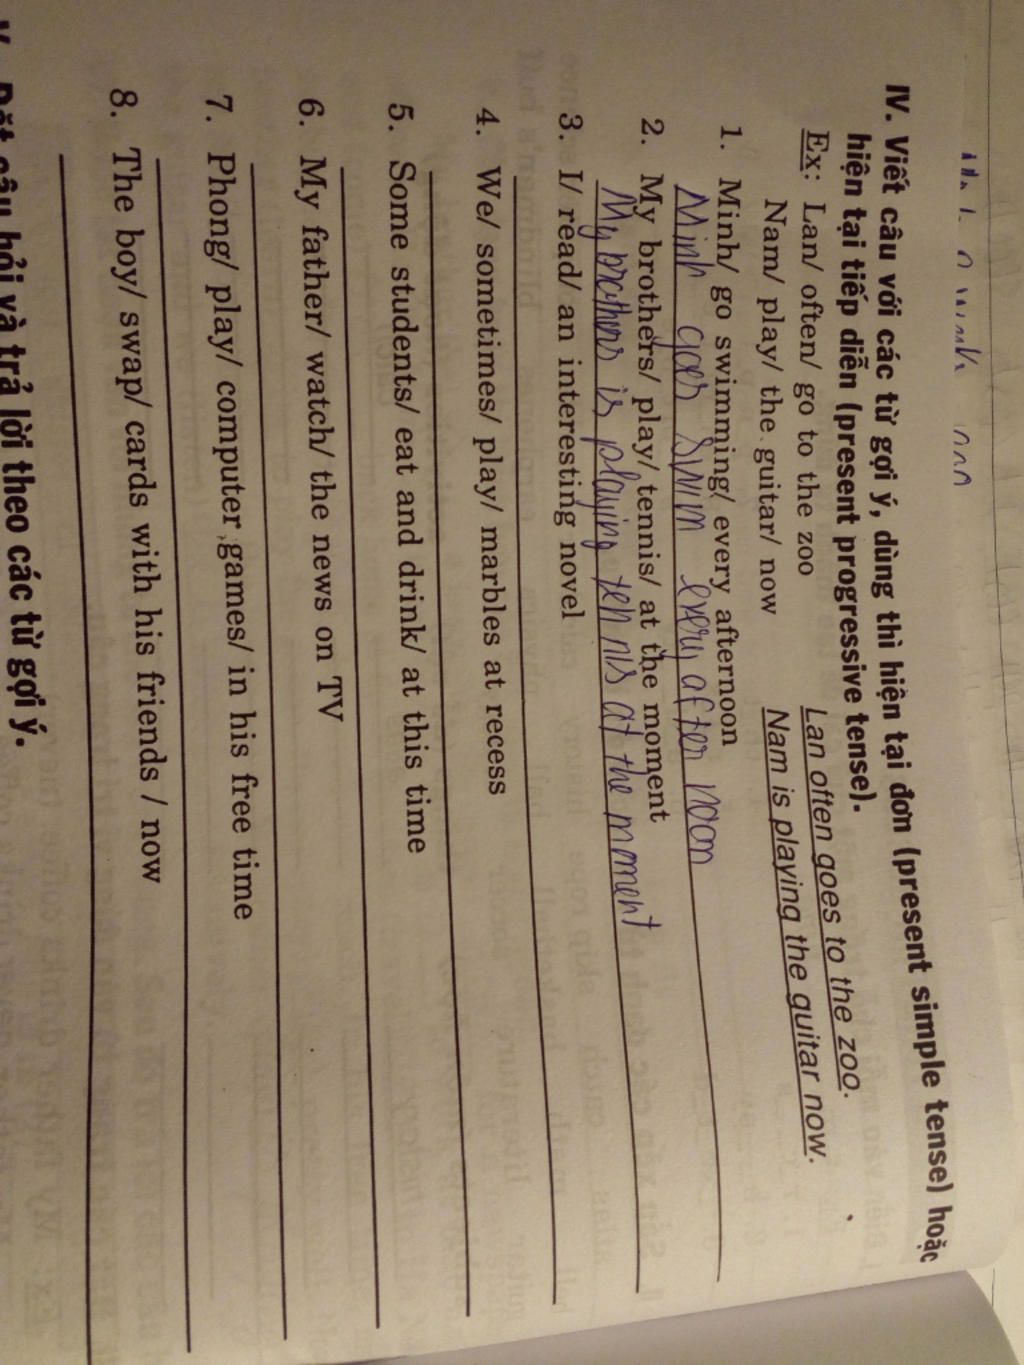 IV. Viết câu với các từ gợi ý, dùng thì hiện tại đơn (present simple tense) hoặc
hiện tại tiếp diễn (present progressive tense).
Ex: Lan/ often/ go to the zoo Lan often goes to the zoo.
Nam/ play/ the guitar/ now Nam is playing the guitar now.
1. Minh/ go swimming/ every afternoon
Minh goes swim every after noon
2. My brothers/ play/ tennis/ at the moment
My brothers is playing tennis at the moment
3. I/ read/ an interesting novel
4. We/ sometimes/ play/ marbles at recess
5. Some students/ eat and drink/ at this time
6. My father/ watch/ the news on TV
7. Phong/ play/ computer games/ in his free time
8. The boy/ swap/ cards with his friends / now
V. Đặt câu hỏi và trả lời theo các từ gợi ý.